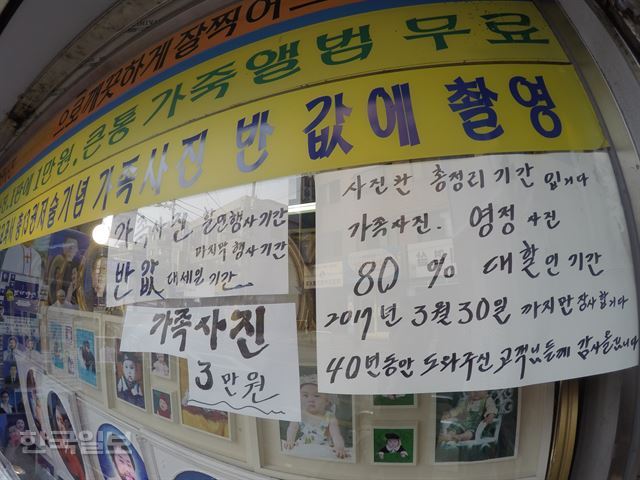 으로깨끗하게 잘찍어
1만원. 큰통 가죽앨범 무료
기술기념 가족사진 반값에 촬영
가족사진 할인행사기간
마지막 행사기간
반값 대세일 기간
가족사진
3만원
사진관 총정리 기간 입니다
가족사진. 영정 사진
80 % 대할인기간
2017년 3월30일 까지만 장사합니다
40년동안 도와주신 고객님들께 감사올립니다
한국일보